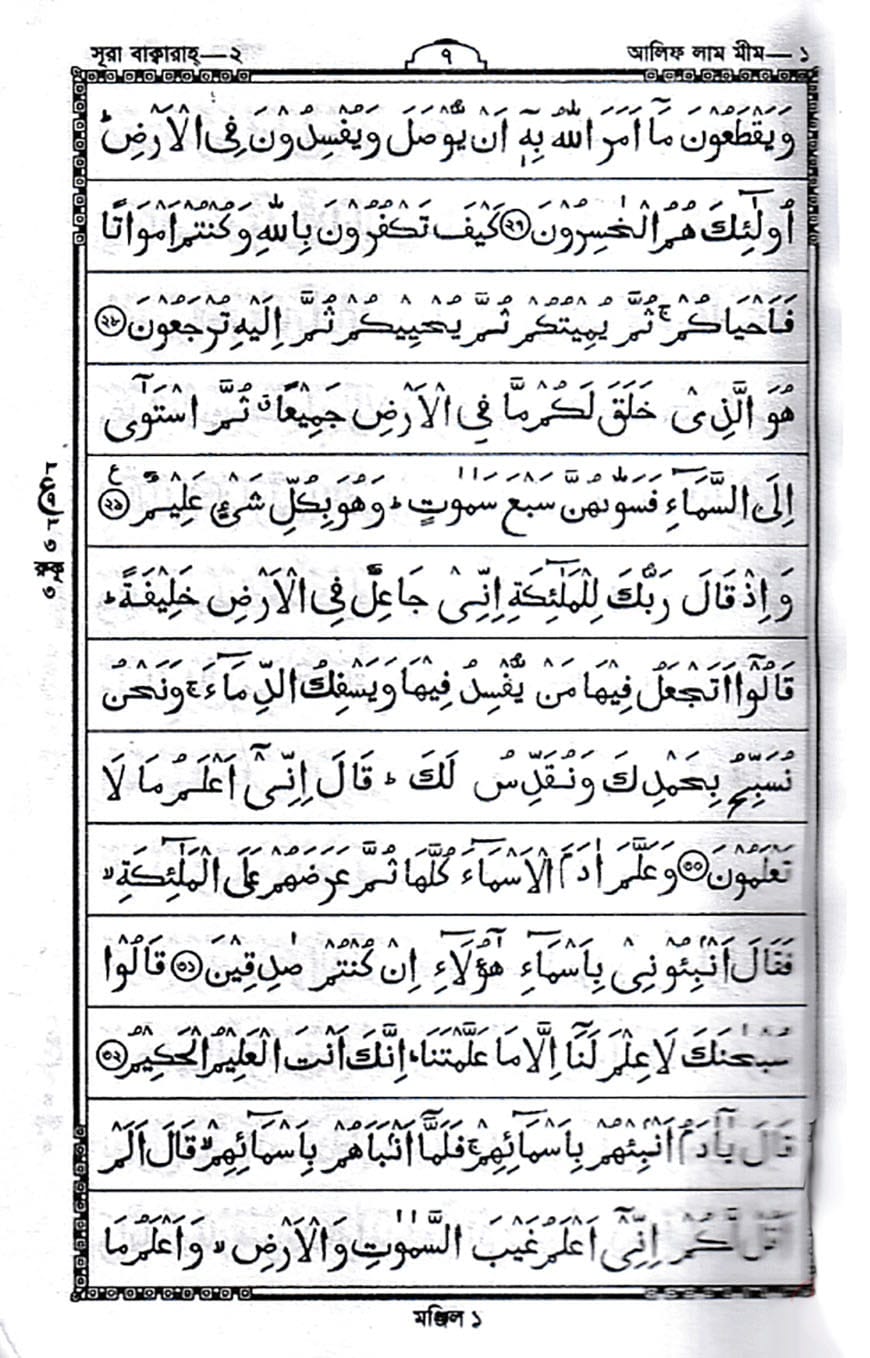 সূরা বাক্বারাহ্—২ ৭ আলিফ লাম মীম—১
وَيَقْطَعُوْنَ مَآ اَمَرَ اللّٰهُ بِهٖٓ اَنْ يُّوْصَلَ وَيُفْسِدُوْنَ فِى الْاَرْضِ ؕ
اُولٰٓئِكَ هُمُ الْخٰسِرُوْنَ ২৭ كَيْفَ تَكْفُرُوْنَ بِاللّٰهِ وَكُنْتُمْ اَمْوَاتًا
فَاَحْيَاكُمْ ۚ ثُمَّ يُمِيْتُكُمْ ثُمَّ يُحْيِيْكُمْ ثُمَّ اِلَيْهِ تُرْجَعُوْنَ ২৮
هُوَ الَّذِىْ خَلَقَ لَكُمْ مَّا فِى الْاَرْضِ جَمِيْعًا ق ثُمَّ اسْتَوٰٓى
اِلَى السَّمَآءِ فَسَوّٰىهُنَّ سَبْعَ سَمٰوٰتٍ ؕ وَهُوَ بِكُلِّ شَىْءٍ عَلِيْمٌ ২৯ ع
وَاِذْ قَالَ رَبُّكَ لِلْمَلٰٓئِكَةِ اِنِّىْ جَاعِلٌ فِى الْاَرْضِ خَلِيْفَةً ؕ
قَالُوْٓا اَتَجْعَلُ فِيْهَا مَنْ يُّفْسِدُ فِيْهَا وَيَسْفِكُ الدِّمَآءَ ۚ وَنَحْنُ
نُسَبِّحُ بِحَمْدِكَ وَنُقَدِّسُ لَكَ ؕ قَالَ اِنِّىْٓ اَعْلَمُ مَا لَا
تَعْلَمُوْنَ ৩০ وَعَلَّمَ اٰدَمَ الْاَسْمَآءَ كُلَّهَا ثُمَّ عَرَضَهُمْ عَلَى الْمَلٰٓئِكَةِ ۙ
فَقَالَ اَنْۢبِئُوْنِىْ بِاَسْمَآءِ هٰٓؤُلَآءِ اِنْ كُنْتُمْ صٰدِقِيْنَ ৩১ قَالُوْا
سُبْحٰنَكَ لَا عِلْمَ لَنَآ اِلَّا مَا عَلَّمْتَنَا ؕ اِنَّكَ اَنْتَ الْعَلِيْمُ الْحَكِيْمُ ৩২
قَالَ يٰٓاٰدَمُ اَنْۢبِئْهُمْ بِاَسْمَآئِهِمْ ۚ فَلَمَّآ اَنْۢبَاَهُمْ بِاَسْمَآئِهِمْ ۙ قَالَ اَلَمْ
اَقُلْ لَّكُمْ اِنِّىْٓ اَعْلَمُ غَيْبَ السَّمٰوٰتِ وَالْاَرْضِ ۙ وَاَعْلَمُ مَا
মঞ্জিল ১